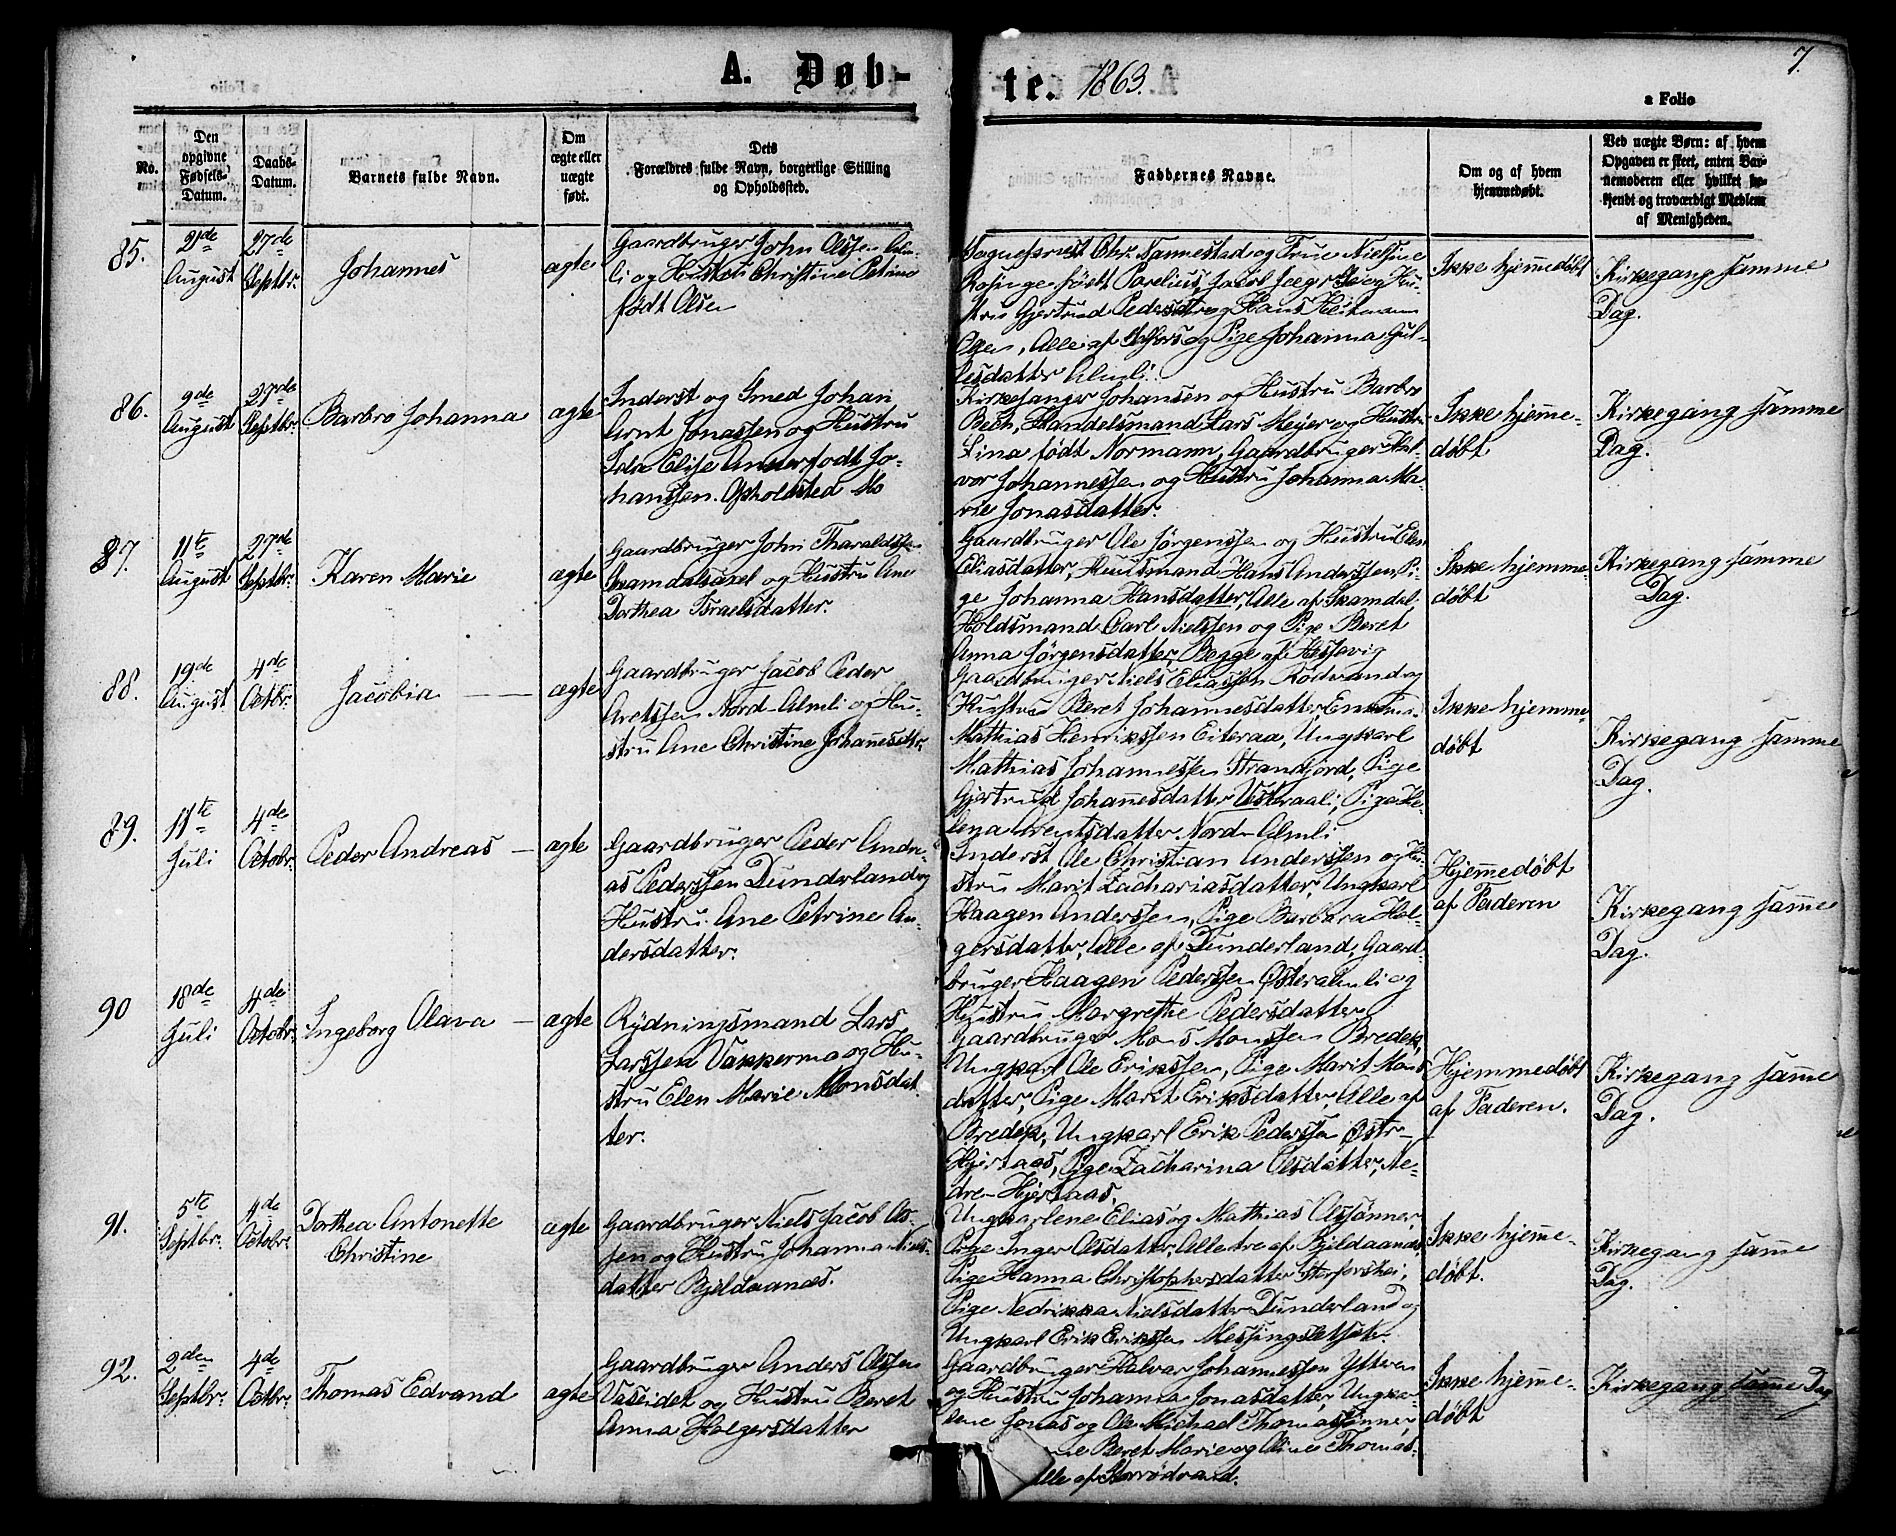 7.
A. Døb-te. 1863.
a Folio
No.
Den opgivne Fødsels-Datum.
Daabs-Datum.
Barnets fulde Navn.
Om ægte eller uægte født.
Dets Forældres fulde Navn, borgerlige Stilling og Opholdssted.
Faddernes Navne.
Om og af hvem hjemmedøbt.
Ved uægte Børn: af hvem Opgaven er skeet, enten Barnemoderen eller hvilket bekjendt og troværdigt Medlem af Menigheden.
85.
21de August
27de Septbr.
Johannes
ægte
Gaardbruger John Olssen Alm-
li og Hustru Christine Petrine
født Olsen
Sognepræst Chr. Nannestad og Frue Nielsine
Rosinge født Parelius, Jacob Jæger og Hu-
stru Gjertrud Pedersdtr og Hans Heitmann
Olsen, Alle af og Pige Johanna Gul-
lesdatter Almli.
Ikke hjemmedøbt
Kirkegang samme
Dag.
86.
9de August
27de Septbr.
Barbro Johanna
ægte
Inderst og Smed Johan
Arnt Jonassen og Hustru
Ida Elise Anser født Jo-
hansen. Opholdsted Mo
Kirkesanger Johansen og Hustru Barbro
Bech, Handelsmand Lars Meyer og Hustru
Lina født Normann, Gaardbruger Hal-
vor Johannessen og Hustru Johanna Ma-
rie Jonasdatter.
Ikke hjemme-
døbt
Kirkegang samme
Dag.
87.
11te August
27de Septbr.
Karen Marie
ægte
Gaardbruger John Tharaldssen
Skamdalsaxel og Hustru Ane
Dorthea Israelsdatter.
Gaardbruger Ole Jørgenssen og Hustru Elen
Eliasdatter, Huusmand Hans Anderssen, Pi-
ge Johanna Hansdatter, Alle af Skamdal,
Holdsmand Carl Nielssen og Pige Beret
Anna Jørgensdatter, Begge af
Ikke hjemme-
døbt
Kirkegang samme
Dag.
88.
19de August
4de Octbr.
Jacobia
ægte
Gaardbruger Jacob Peder
Arntssen Nord-Almli og Hu-
stru Ane Christine Johannesdtr.
Gaardbruger Niels Eliassen Rødvand og
Hustru Beret Johannesdatter,
Mathias Henrikssen Eiteraa, Ungkarl
Mathias Johannessen Strandjord, Pige
Gjertrud Johannesdatter Utteraali, Pige He-
lena Arentsdatter Nord-Almli
Ikke hjemme-
døbt
Kirkegang samme
Dag.
89.
11te Juli
4de Octobr.
Peder Andreas
ægte
Gaardbruger Peder Andre-
as Pederssen Dunderland og
Hustru Ane Petrine An-
dersdatter.
Inderst Ole Christian Anderssen og Hu-
stru Marit Zachariasdatter, Ungkarl
Haagen Anderssen, Pige Barbara Hol-
gersdatter, Alle af Dunderland, Gaard-
bruger Haagen Pederssen Østeralmli og
Hustru Margrethe Pedersdatter
Hjemmedøbt
af Faderen
Kirkegang samme
Dag.
90
18de Juli
4de Octobr.
Ingeborg Olava
ægte
Rydningsmand Lars
Larssen Vakkermo og Hu-
stru Elen Marie Monsdat-
ter.
Gaardbruger Mons Monssen Bredek,
Ungkarl Ole Erikssen, Pige Marit Mons
datter, Pige Marit Eriksdatter, Alle af
Bredek, Ungkarl Erik Pederssen Østre-
Hjertaas, Pige Zacharina Olsdatter, Ne-
dre-Hjertaas.
Hjemmedøbt
af Faderen.
Kirkegang samme
Dag.
91.
5te Septbr.
4de Octobr.
Dorthea Antonette
Christine
ægte
Gaardbruger Niels Jacob Ols-
sen og Hustru Johanna Niels-
datter Bjeldaanes.
Ungkarlene Elias og Mathias Olssønner,
Pige Inger Olsdatter, Alle tre af Bjeldaanes,
Pige Hanna Christophersdatter Storforshei,
Pige Nedrikka Nielsdatter Dunderland og
Ungkarl Erik Erikssen Messingsletten.
Ikke hjemme-
døbt.
Kirkegang samme
Dag.
92.
2den Septbr.
4de Octbr.
Thomas Edvard
ægte
Gaardbruger Anders Olssen
Vaseidet og Hustru Beret
Anna Holgersdatter
Gaardbruger Halvar Johannessen Ytteren
og Hustru Johanna Jonasdatter, Ungkar-
lene Jonas og Ole Michael Thomassønner,
Beret Marie og Oline Thomas-
Alle af
Ikke hjemme-
døbt
Kirkegang samme Dag